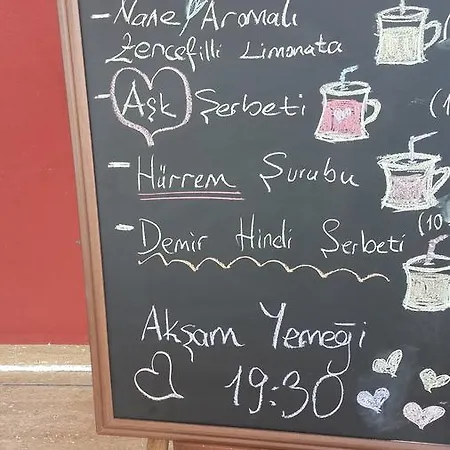 - Nane Aromalı
Zencefilli Limonata
- Aşk Şerbeti (1
- Hürrem Şurubu
- Demir Hindi Şerbeti (10
Akşam Yemeği
19:30